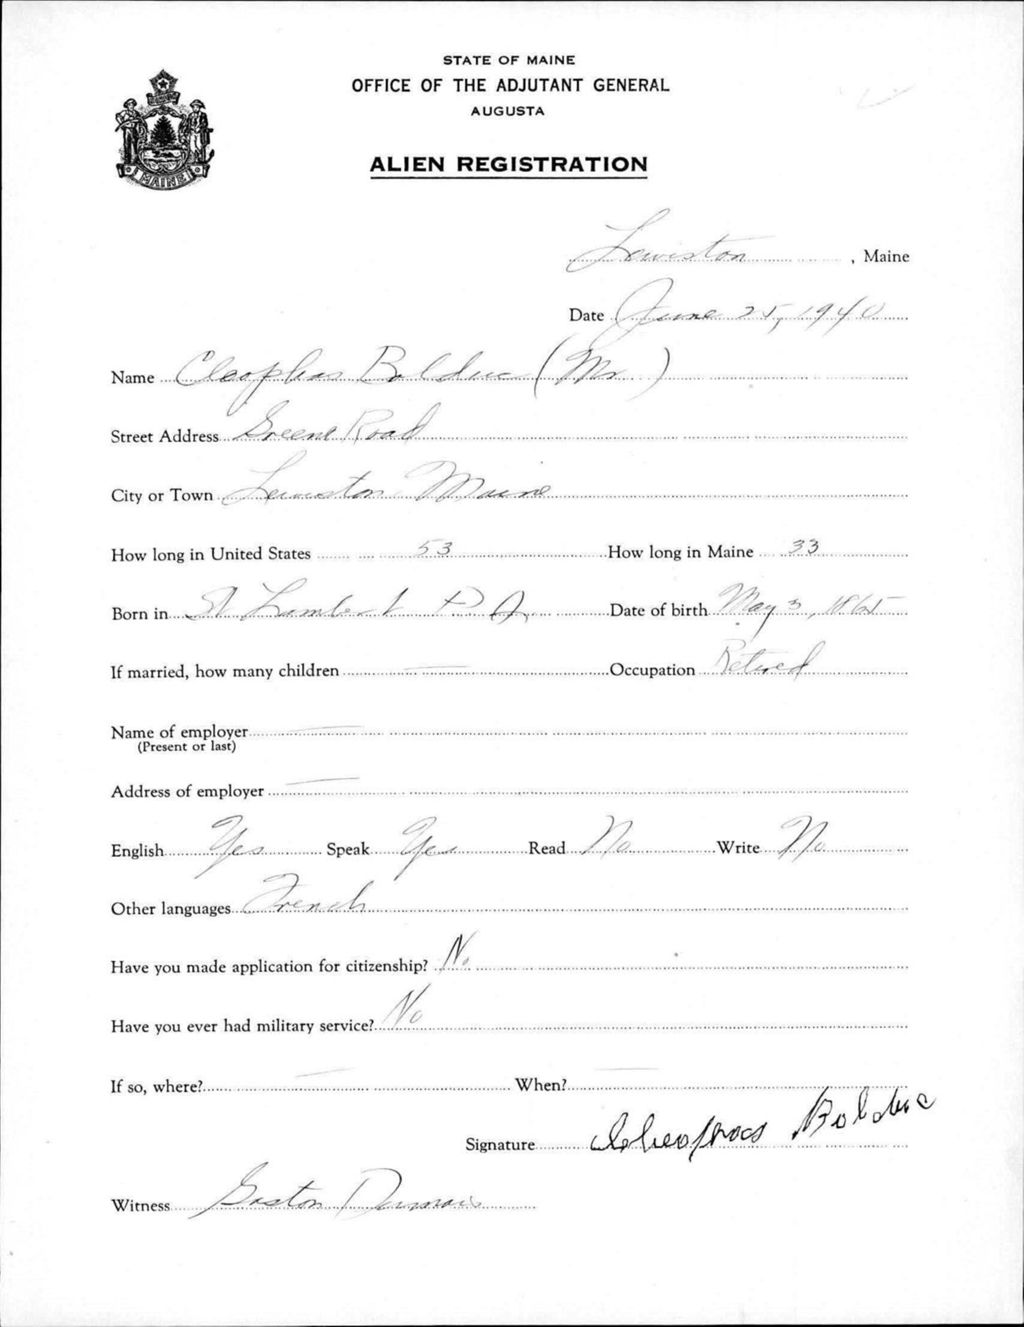 STATE OF MAINE
OFFICE OF THE ADJUTANT GENERAL
AUGUSTA
ALIEN REGISTRATION
MAINE
Lewiston, Maine
Date June 25, 1940
Name Cleophas Bolduc (Mr)
Street Address Greene Road
City or Town Lewiston Maine
How long in United States 53 How long in Maine 33
Born in St Lambert P Q. Date of birth May 3, 1865
If married, how many children — Occupation Retired
Name of employer —
(Present or last)
Address of employer —
English Yes Speak Yes Read No Write No
Other languages French
Have you made application for citizenship? No
Have you ever had military service? No
If so, where? — When? —
Signature Cleophas Bolduc
Witness Gaston Dumais